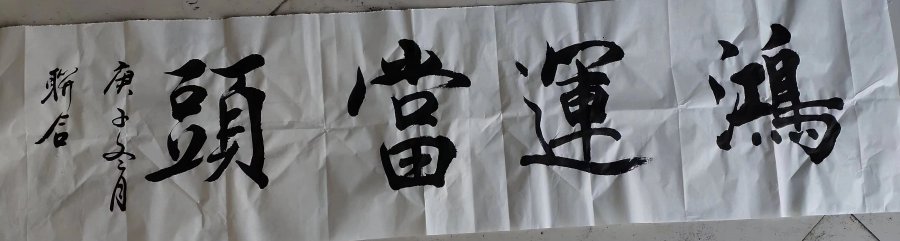 鴻運當頭
庚子冬月
聯合